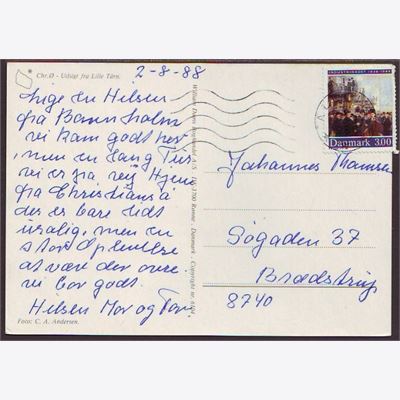 Chr.Ø - Udsigt fra Lille Tårn.
2-8-88
Lige en Hilsen
fra Bornholm
vi kom godt her
men en lang Tur
vi er på vej Hjem
fra Christiansø
der er bare lidt
uroligt, men en
stor Oplevelse
at være der ovre
vi bor godt.
Hilsen Mor og
Foto: C. A. Andersen.
3700 Rønne - Danmark - Copyright nr.
INDUSTRIRÅDET 1838-1988
Danmark 3.00
Johannes
Søgaden 37
Brædstrup
8740